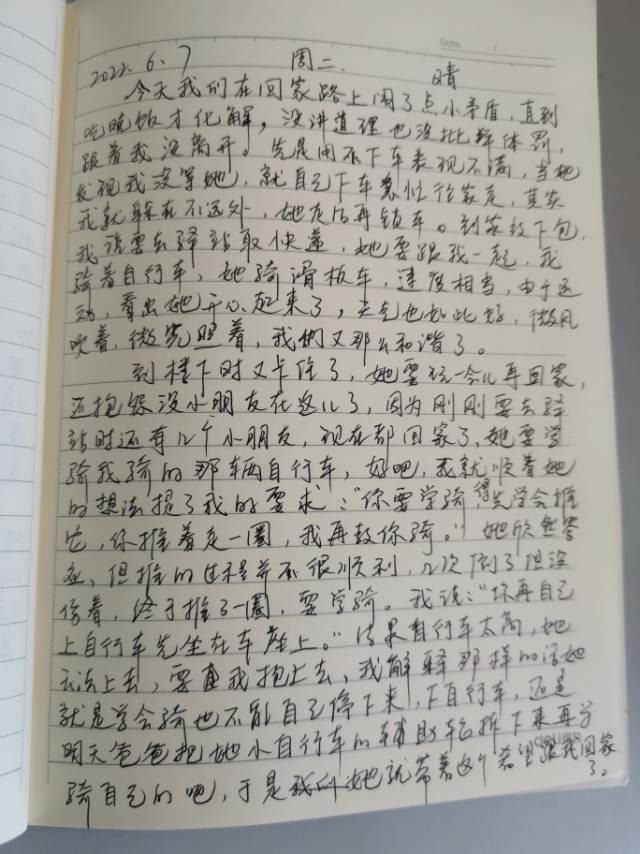 Date: /
2022.6.7 周二. 晴
今天我们在回家路上闹了点小矛盾,直到
吃晚饭才化解,没讲道理也没批评体罚,
跟着我没离开。先是用不下车表现不满,当她
发现我没等她,就自己下车急忙往家走,其实
我就躲在不远处,她走后再锁车。到家放下包,
我说要去驿站取快递,她要跟我一起,我
骑着自行车,她骑滑板车,速度相当,由于运
动,看出她开心起来了,天气也如此好,微风
吹着,微光照着,我们又那么和谐了。
到楼下时又卡住了,她要玩一会儿再回家,
还抱怨没小朋友在这儿了,因为刚刚要去驿
站时还有几个小朋友,现在都回家了,她要学
骑我骑的那辆自行车,好吧,我就顺着她
的想法提了我的要求:“你要学骑,得先学会推
它,你推着走一圈,我再教你骑。”她欣然答
应,但推的过程并不很顺利,几次倒了但没
伤着,终于推了一圈,要学骑。我说:“你再自己
上自行车先坐在车座上。”结果自行车太高,她
无法上去,要直我抱上去,我解释那样的话她
就是学会骑也不能自己停下来,下自行车,还是
明天爸爸把她小自行车的辅助轮拆下来再学
骑自己的吧,于是我们她就带着这个希望跟我回家
了。